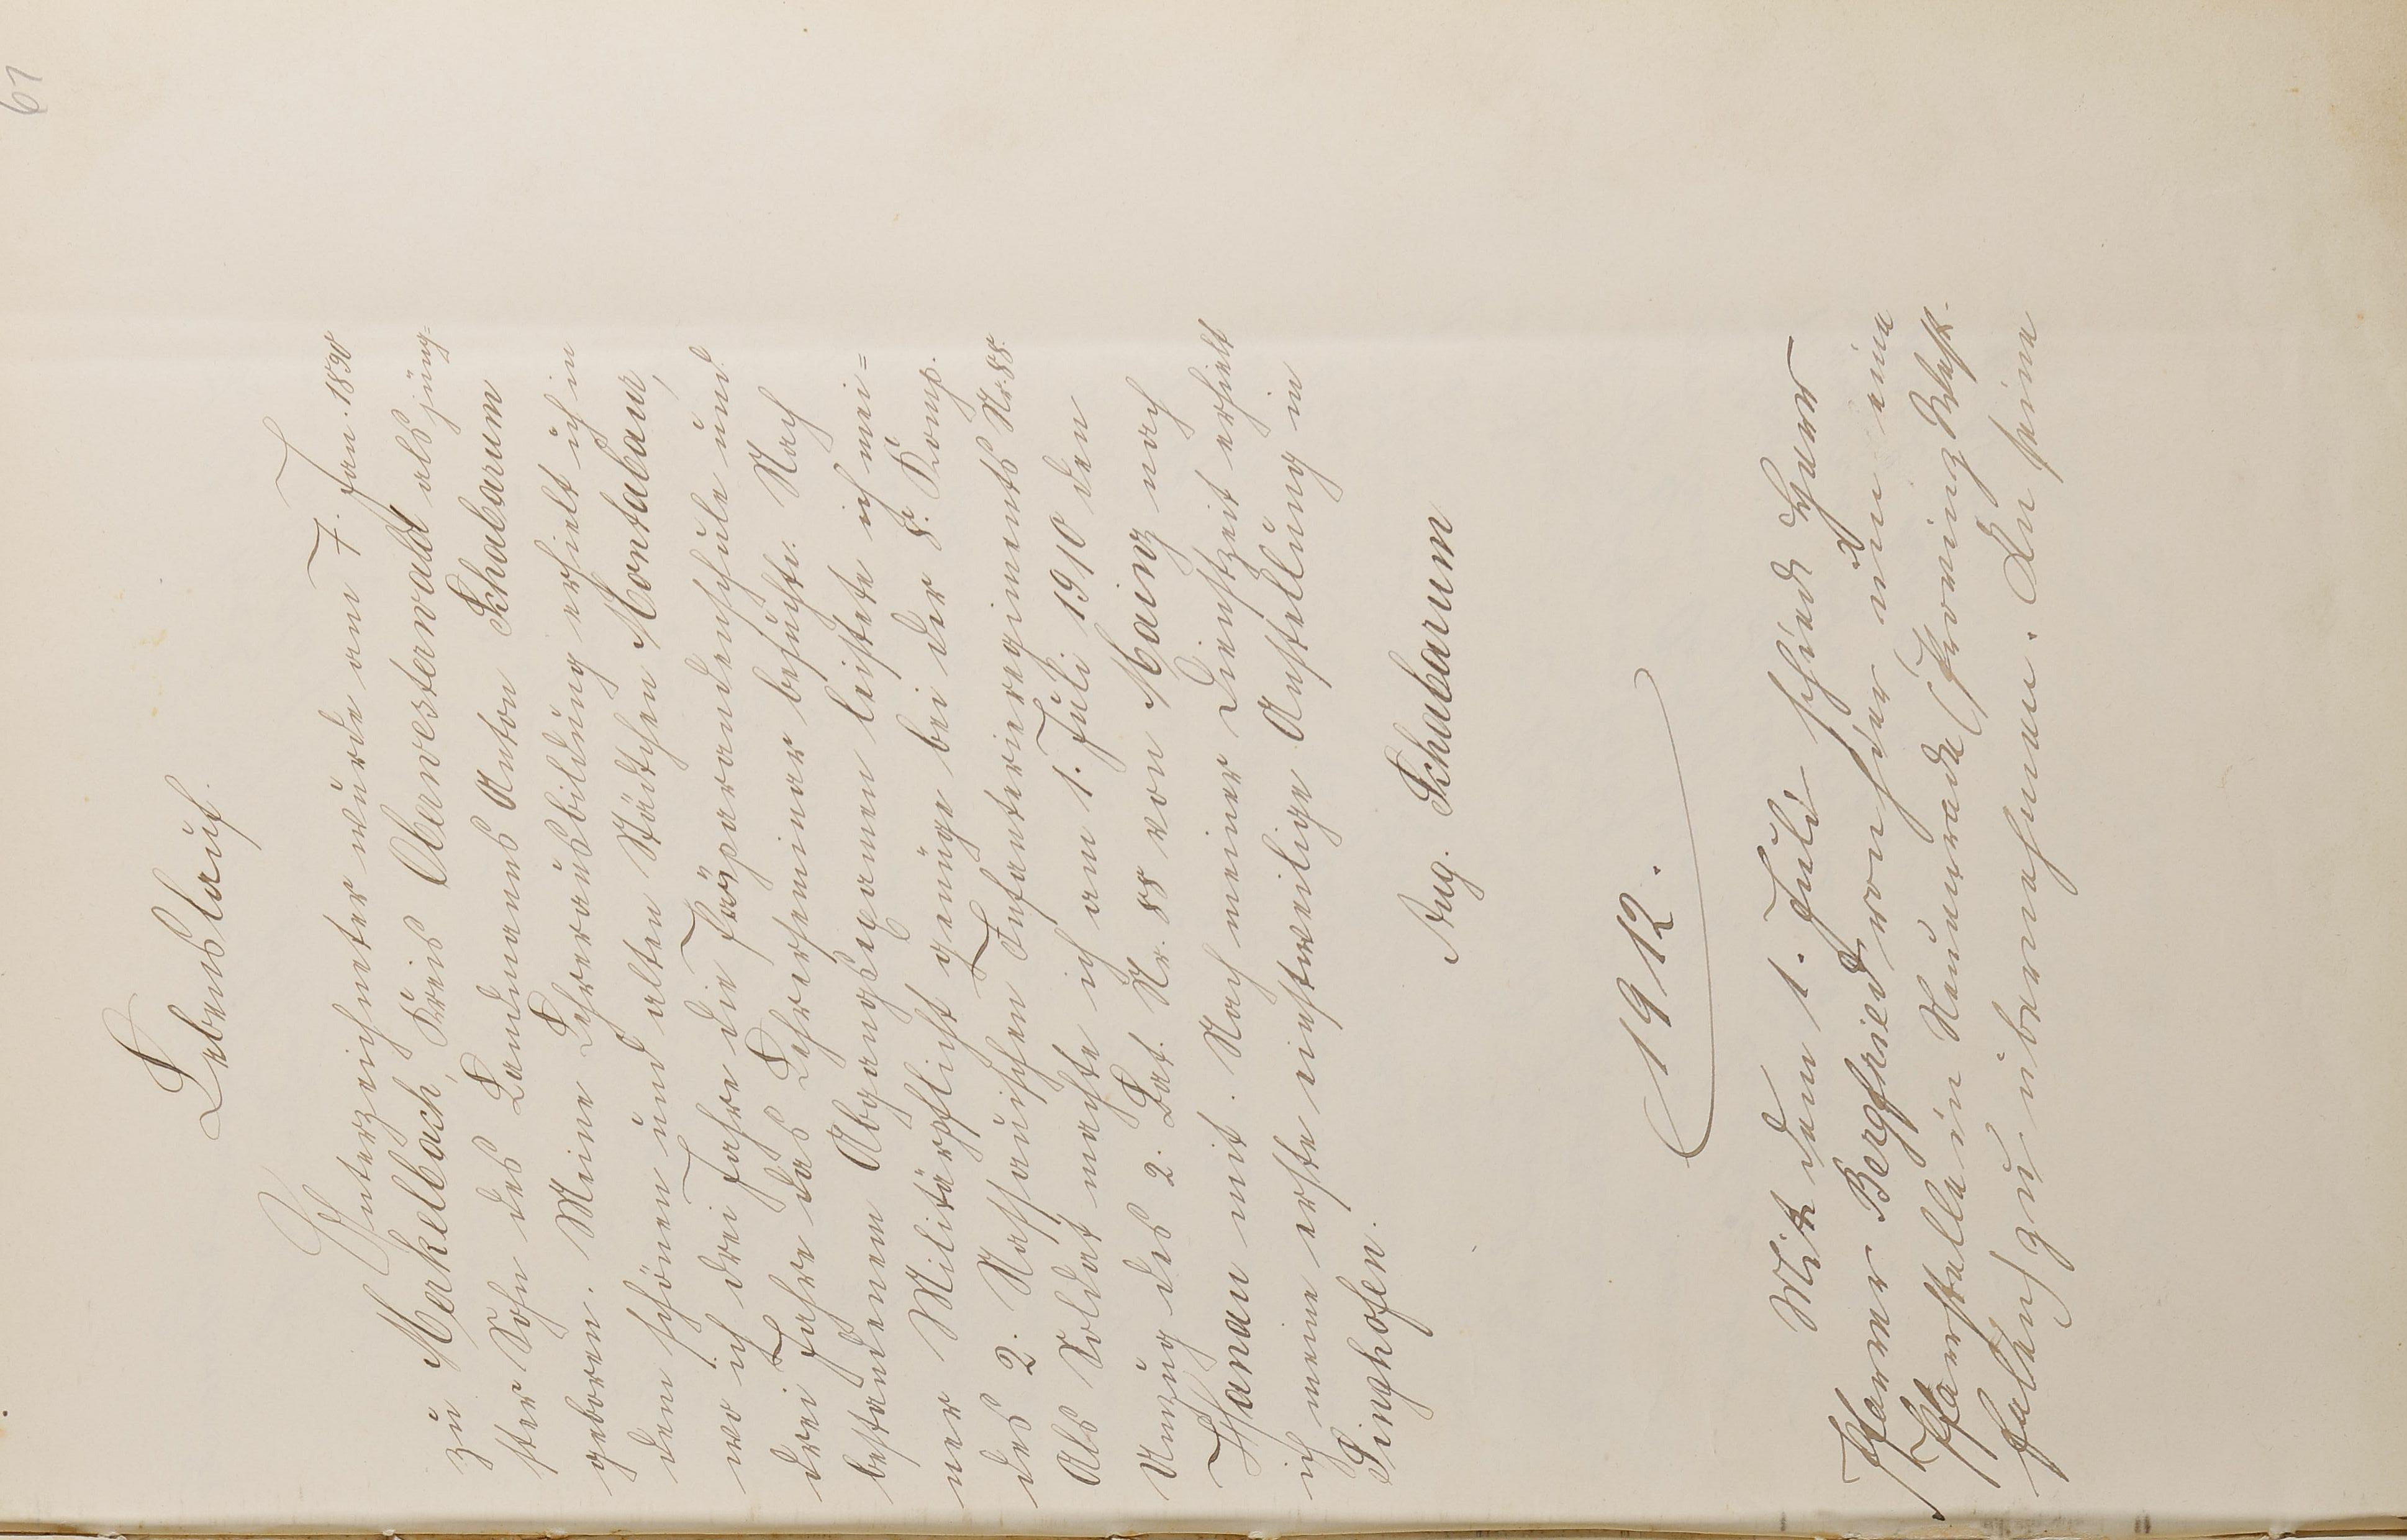 61
Lebenslauf.
Unterzeichneter wurde am 7. Jan. 1890
zu Merkelbach, Kreis Oberwesterwald als jüng=
ster Sohn des Landmanns Anton Schabarum
geboren. Meine Lehrerausbildung erhielt ich in
dem schönen und alten Städtchen Montabaur,
wo ich drei Jahre die Präparandenschule und
drei Jahre das Lehrerseminar besuchte. Nach
bestandenem Abgangsexamen leistete ich mei=
ner Militärpflicht genüge bei der 8. Komp.
des 2. Nassauischen Infanterieregiments Nr. 88.
Als Soldat machte ich am 1. Juli 1910 den
Umzug des 2. Bat. Nr. 88 von Mainz nach
Hanau mit. Nach meiner Dienstzeit erhielt
ich meine erste einstweilige Anstellung in
Singhofen.
Aug. Schabarum
1912.
Mit dem 1. Juli schied Herr
Pfarrer Bergfried von hier um eine
Pfarrstelle in Neuenrade (Provinz Westf-
falen) zu übernehmen. An seine